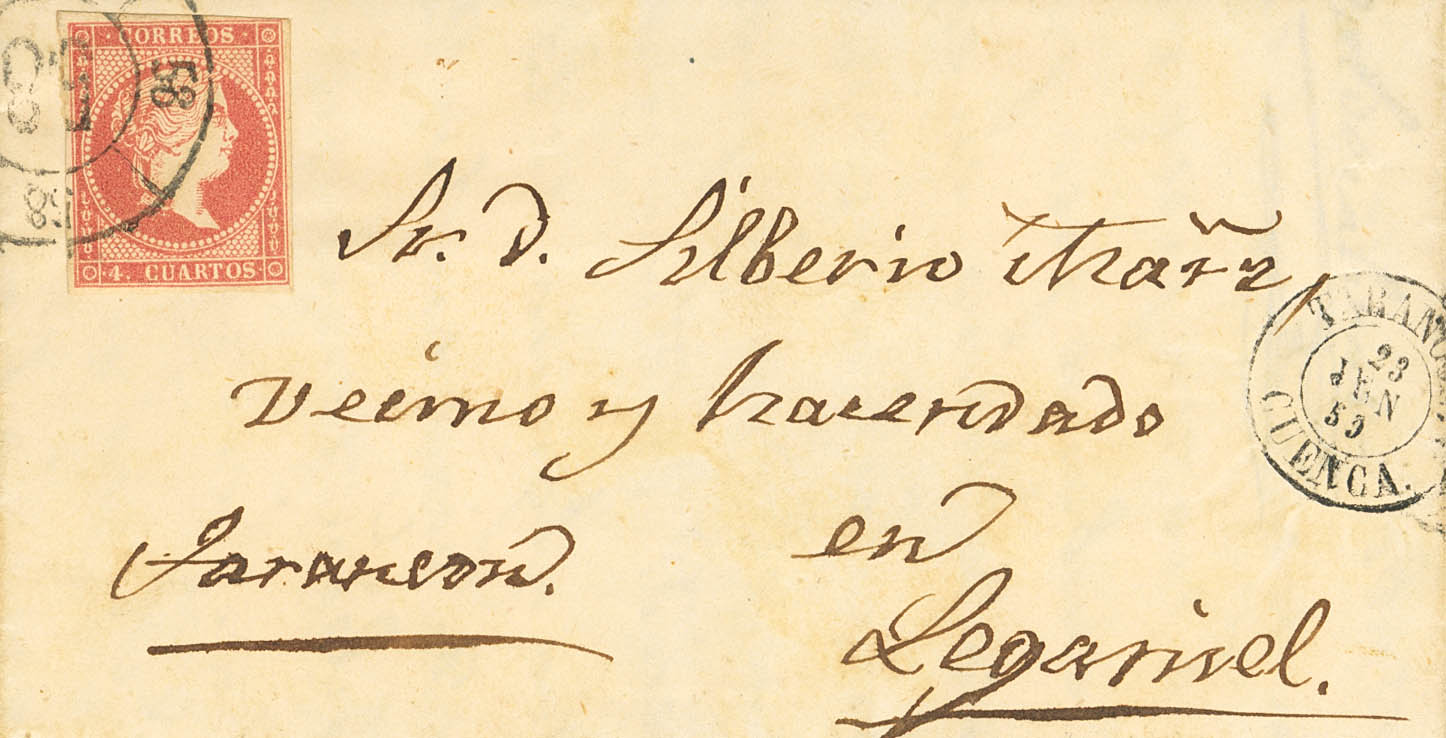 CORREOS
4. CUARTOS
Sr. D. Silberio
vecino y hacendado
Tarancon.
en
TARANCON
23
JUN
59
CUENCA.